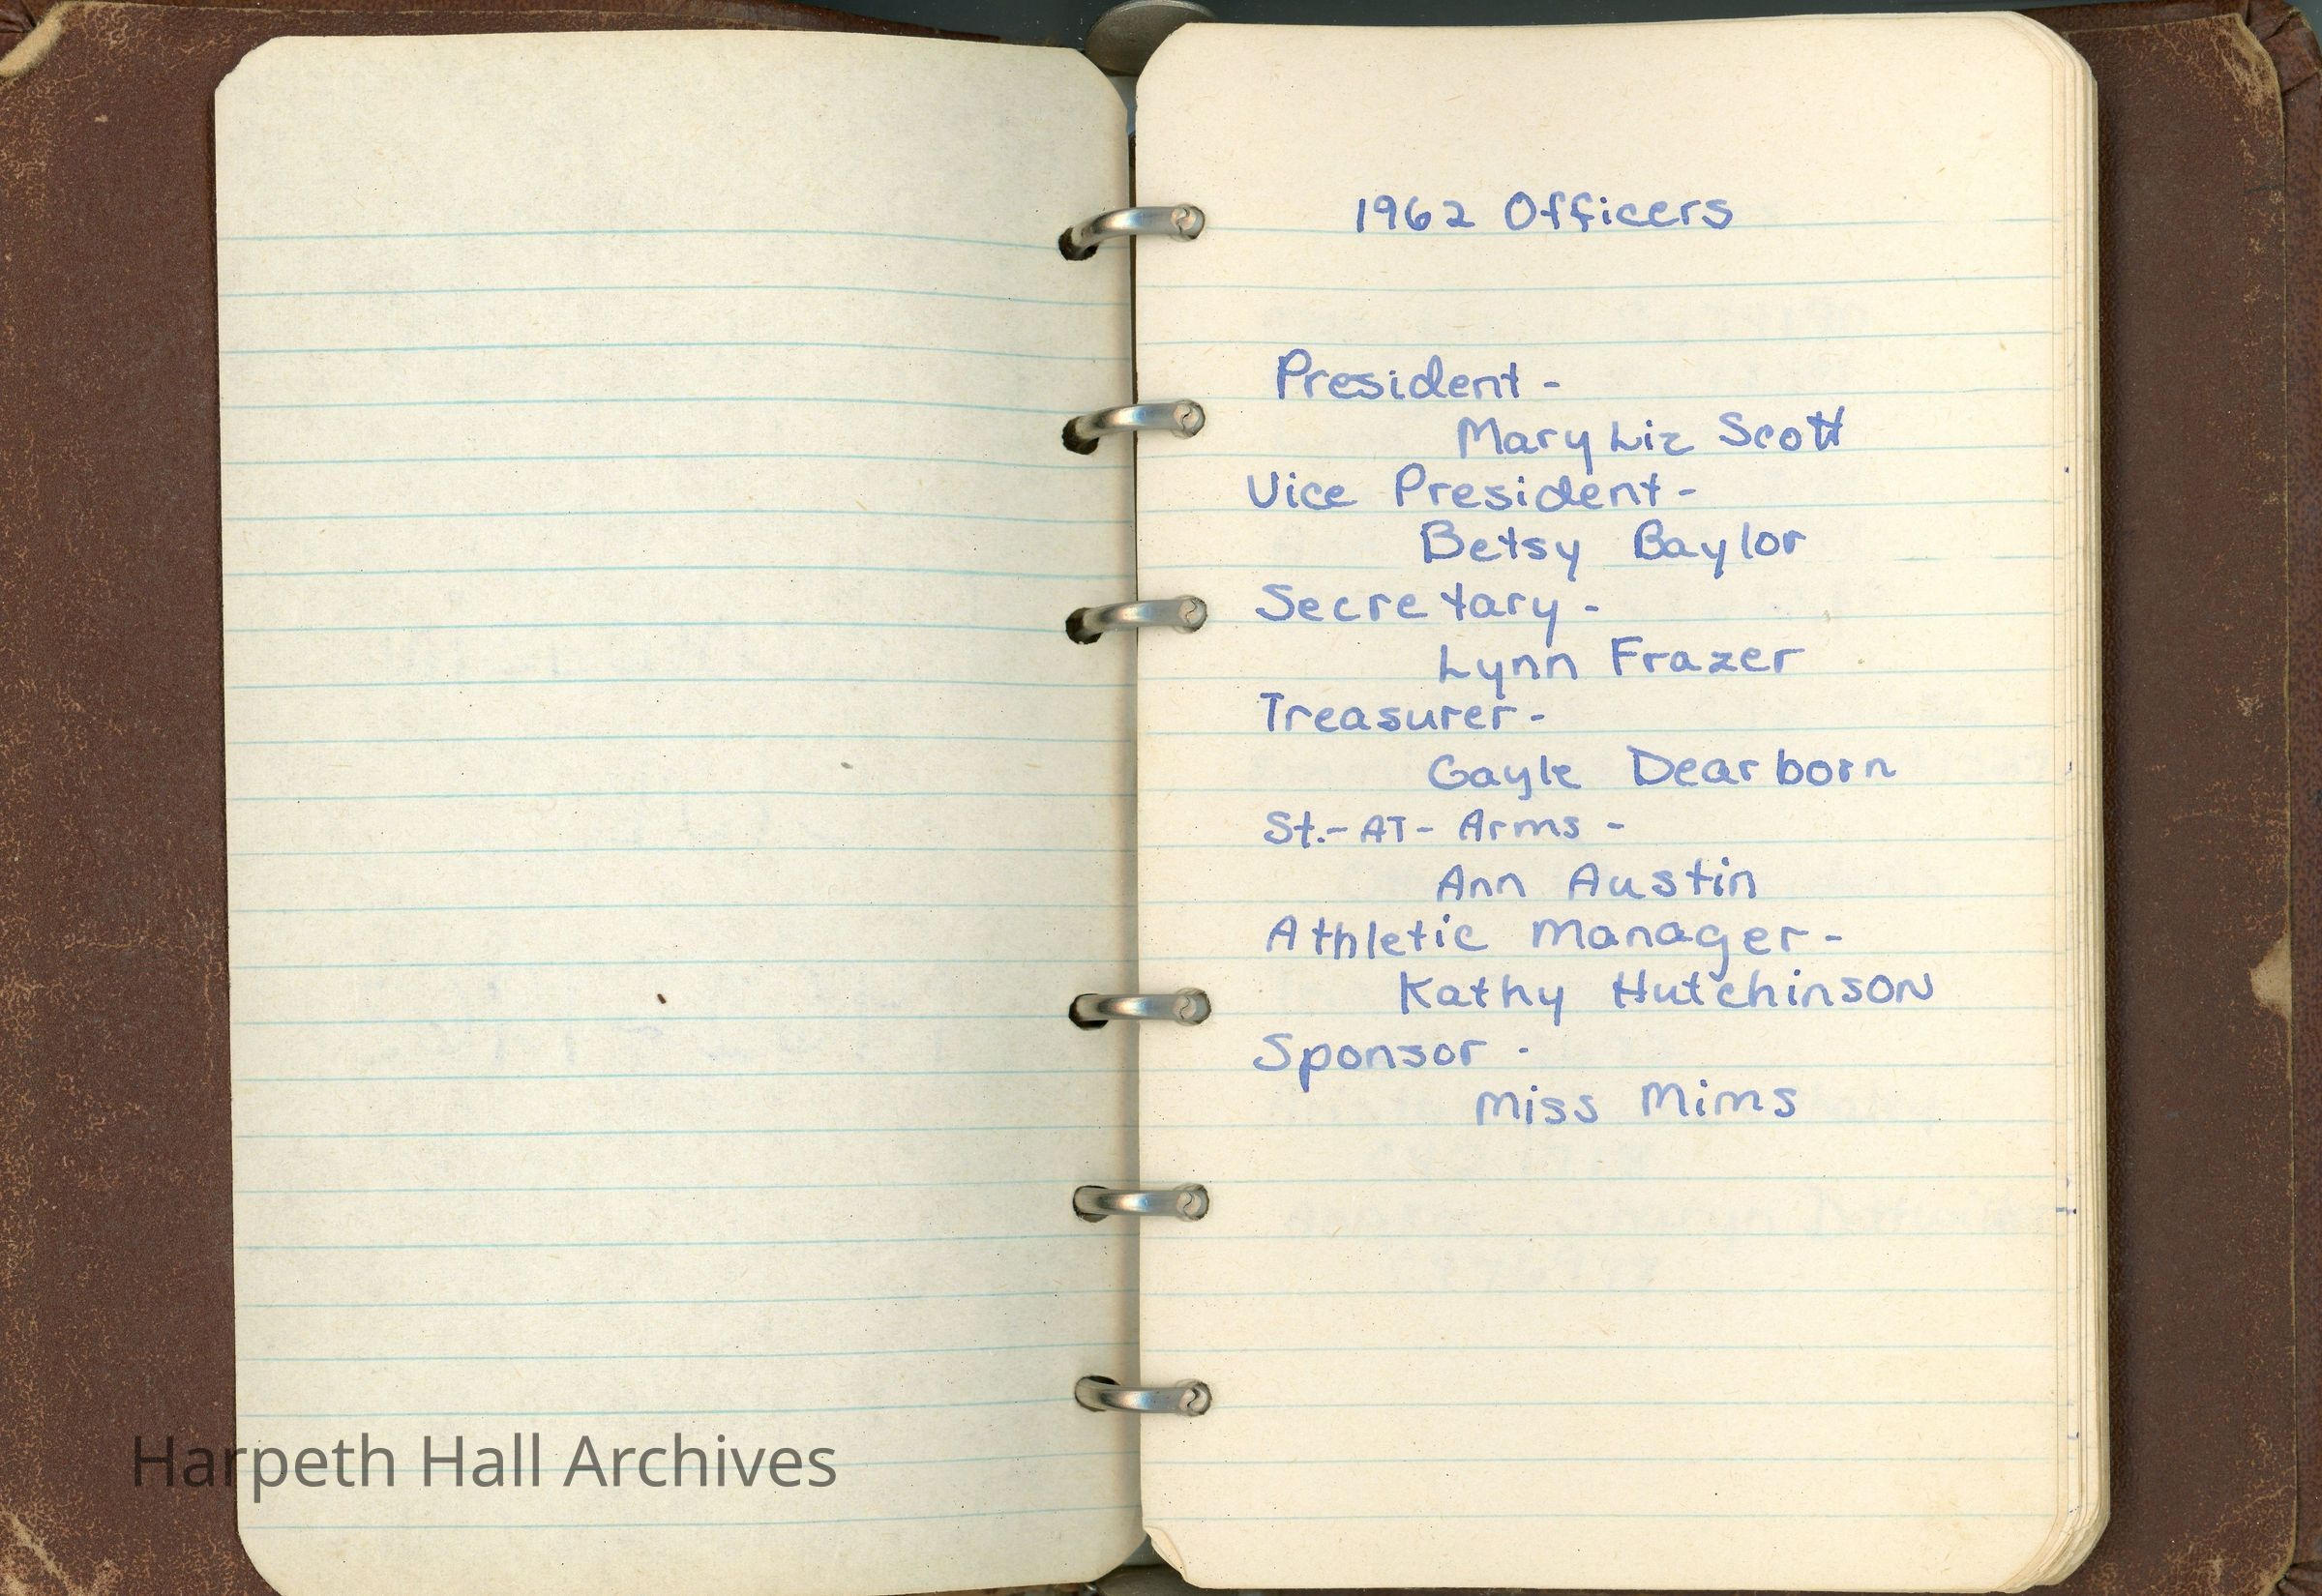 1962 Officers
President -
Mary Liz Scott
Vice President -
Betsy Baylor
Secretary -
Lynn Frazer
Treasurer -
Gayle Dearborn
St.- AT - Arms -
Ann Austin
Athletic Manager -
Kathy Hutchinson
Sponsor -
Miss Mims
Harpeth Hall Archives